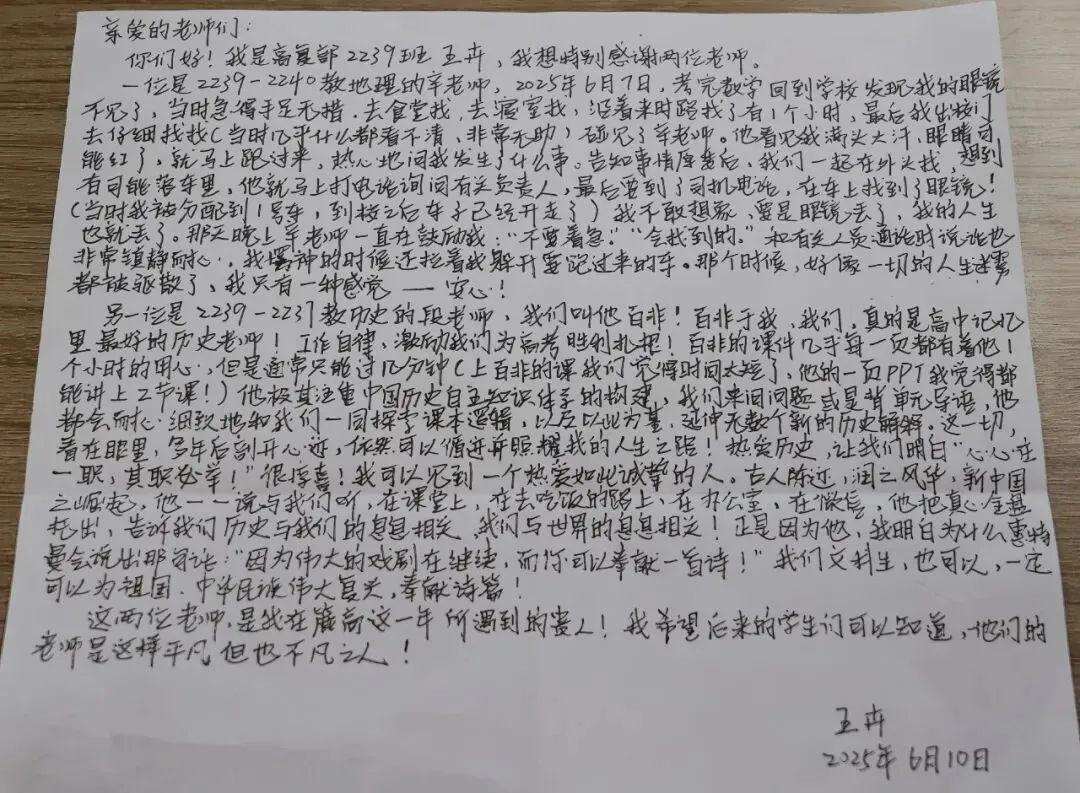 亲爱的老师们：
你们好！我是高复部2239班 王卉，我想特别感谢两位老师。
一位是2239-2240教地理的辛老师，2025年6月7日，考完数学回到学校发现我的眼镜
不见了，当时急得手足无措，去食堂找，去寝室找，沿着来时路找了有1个小时，最后我出校门
去仔细找找（当时几乎什么都看不清、非常无助）碰见了辛老师。他看见我满头大汗，眼睛可
能红了，就马上跑过来，热心地问我发生了什么事。告知事情原委后，我们一起在外头找，想到
有可能落车里，他就马上打电话询问有关负责人，最后要到了司机电话，在车上找到了眼镜！
（当时我被分配到1号车，到校之后车子已经开走了）我不敢想象，要是眼镜丢了，我的人生
也就丢了。那天晚上辛老师一直在鼓励我："不要着急""会找到的。"和有关人员通话时说话也
非常镇静耐心。我愣神的时候还拉着我躲开要跑过来的车。那个时候，好像一切的人生迷雾
都被驱散了，我只有一种感觉——安心！
另一位是2239-2237教历史的段老师，我们叫他百非！百非于我、我们，真的是高中记忆
里最好的历史老师！工作自律，激励我们为高考胜利扎把！百非的课件几乎每一页都有着他1
个小时的用心，但是通常只能过几分钟（上百非的课我们觉得时间太短了，他的一页PPT我觉得都
能讲上2节课！）他极其注重中国历史自主知识体系的构建，我们来问问题或是背单元导语，他
都会耐心、细致地和我们一同探寻课本逻辑，以及以此为基，延伸无数个新的历史解释。这一切，
看在眼里，多年后剖开心迹，依然可以循迹并照耀我的人生之路！热爱历史，让我们明白"心心在
一职，其职必举！"很惊喜！我可以见到一个热爱如此诚挚的人。古人陈迹，润之风华，新中国
之崛起，他一一说与我们听，在课堂上，在去吃饭的路上，在办公室，在微信，他把真心全盘
托出，告诉我们历史与我们的息息相关、我们与世界的息息相关！正是因为他，我明白为什么惠特
曼会说出那句话："因为伟大的戏剧在继续，而你可以奉献一首诗！"我们文科生，也可以，一定
可以为祖国、中华民族伟大复兴，奉献诗篇！
这两位老师，是我在簰高这一年所遇到的贵人！我希望后来的学生们可以知道，他们的
老师是这样平凡但也不凡之人！
王卉
2025年6月10日